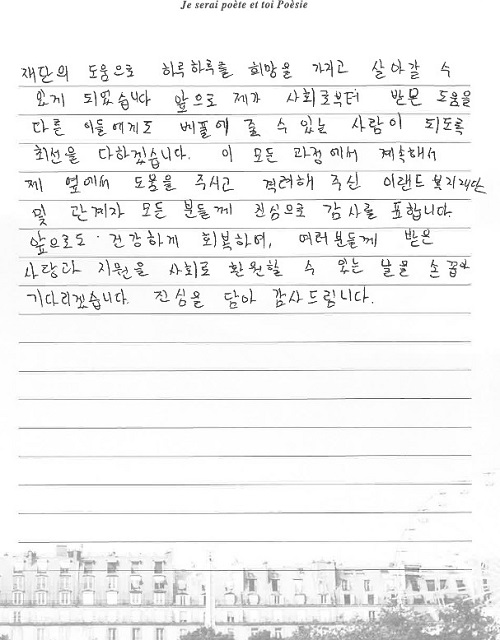 Je serai poète et toi Poèsie
재단의 도움으로 하루하루를 희망을 가지고 살아갈 수
있게 되었습니다 앞으로 제가 사회로부터 받은 도움을
다른 이들에게도 베풀어 줄 수 있는 사람이 되도록
최선을 다하겠습니다. 이 모든 과정에서 계속해서
제 옆에서 도움을 주시고 격려해 주신 이랜드복지재단
및 관계자 모든 분들께 진심으로 감사를 표합니다.
앞으로도 건강하게 회복하며, 여러분들께 받은
사랑과 지원을 사회로 환원할 수 있는 날을 손꼽아
기다리겠습니다. 진심을 담아 감사드립니다.